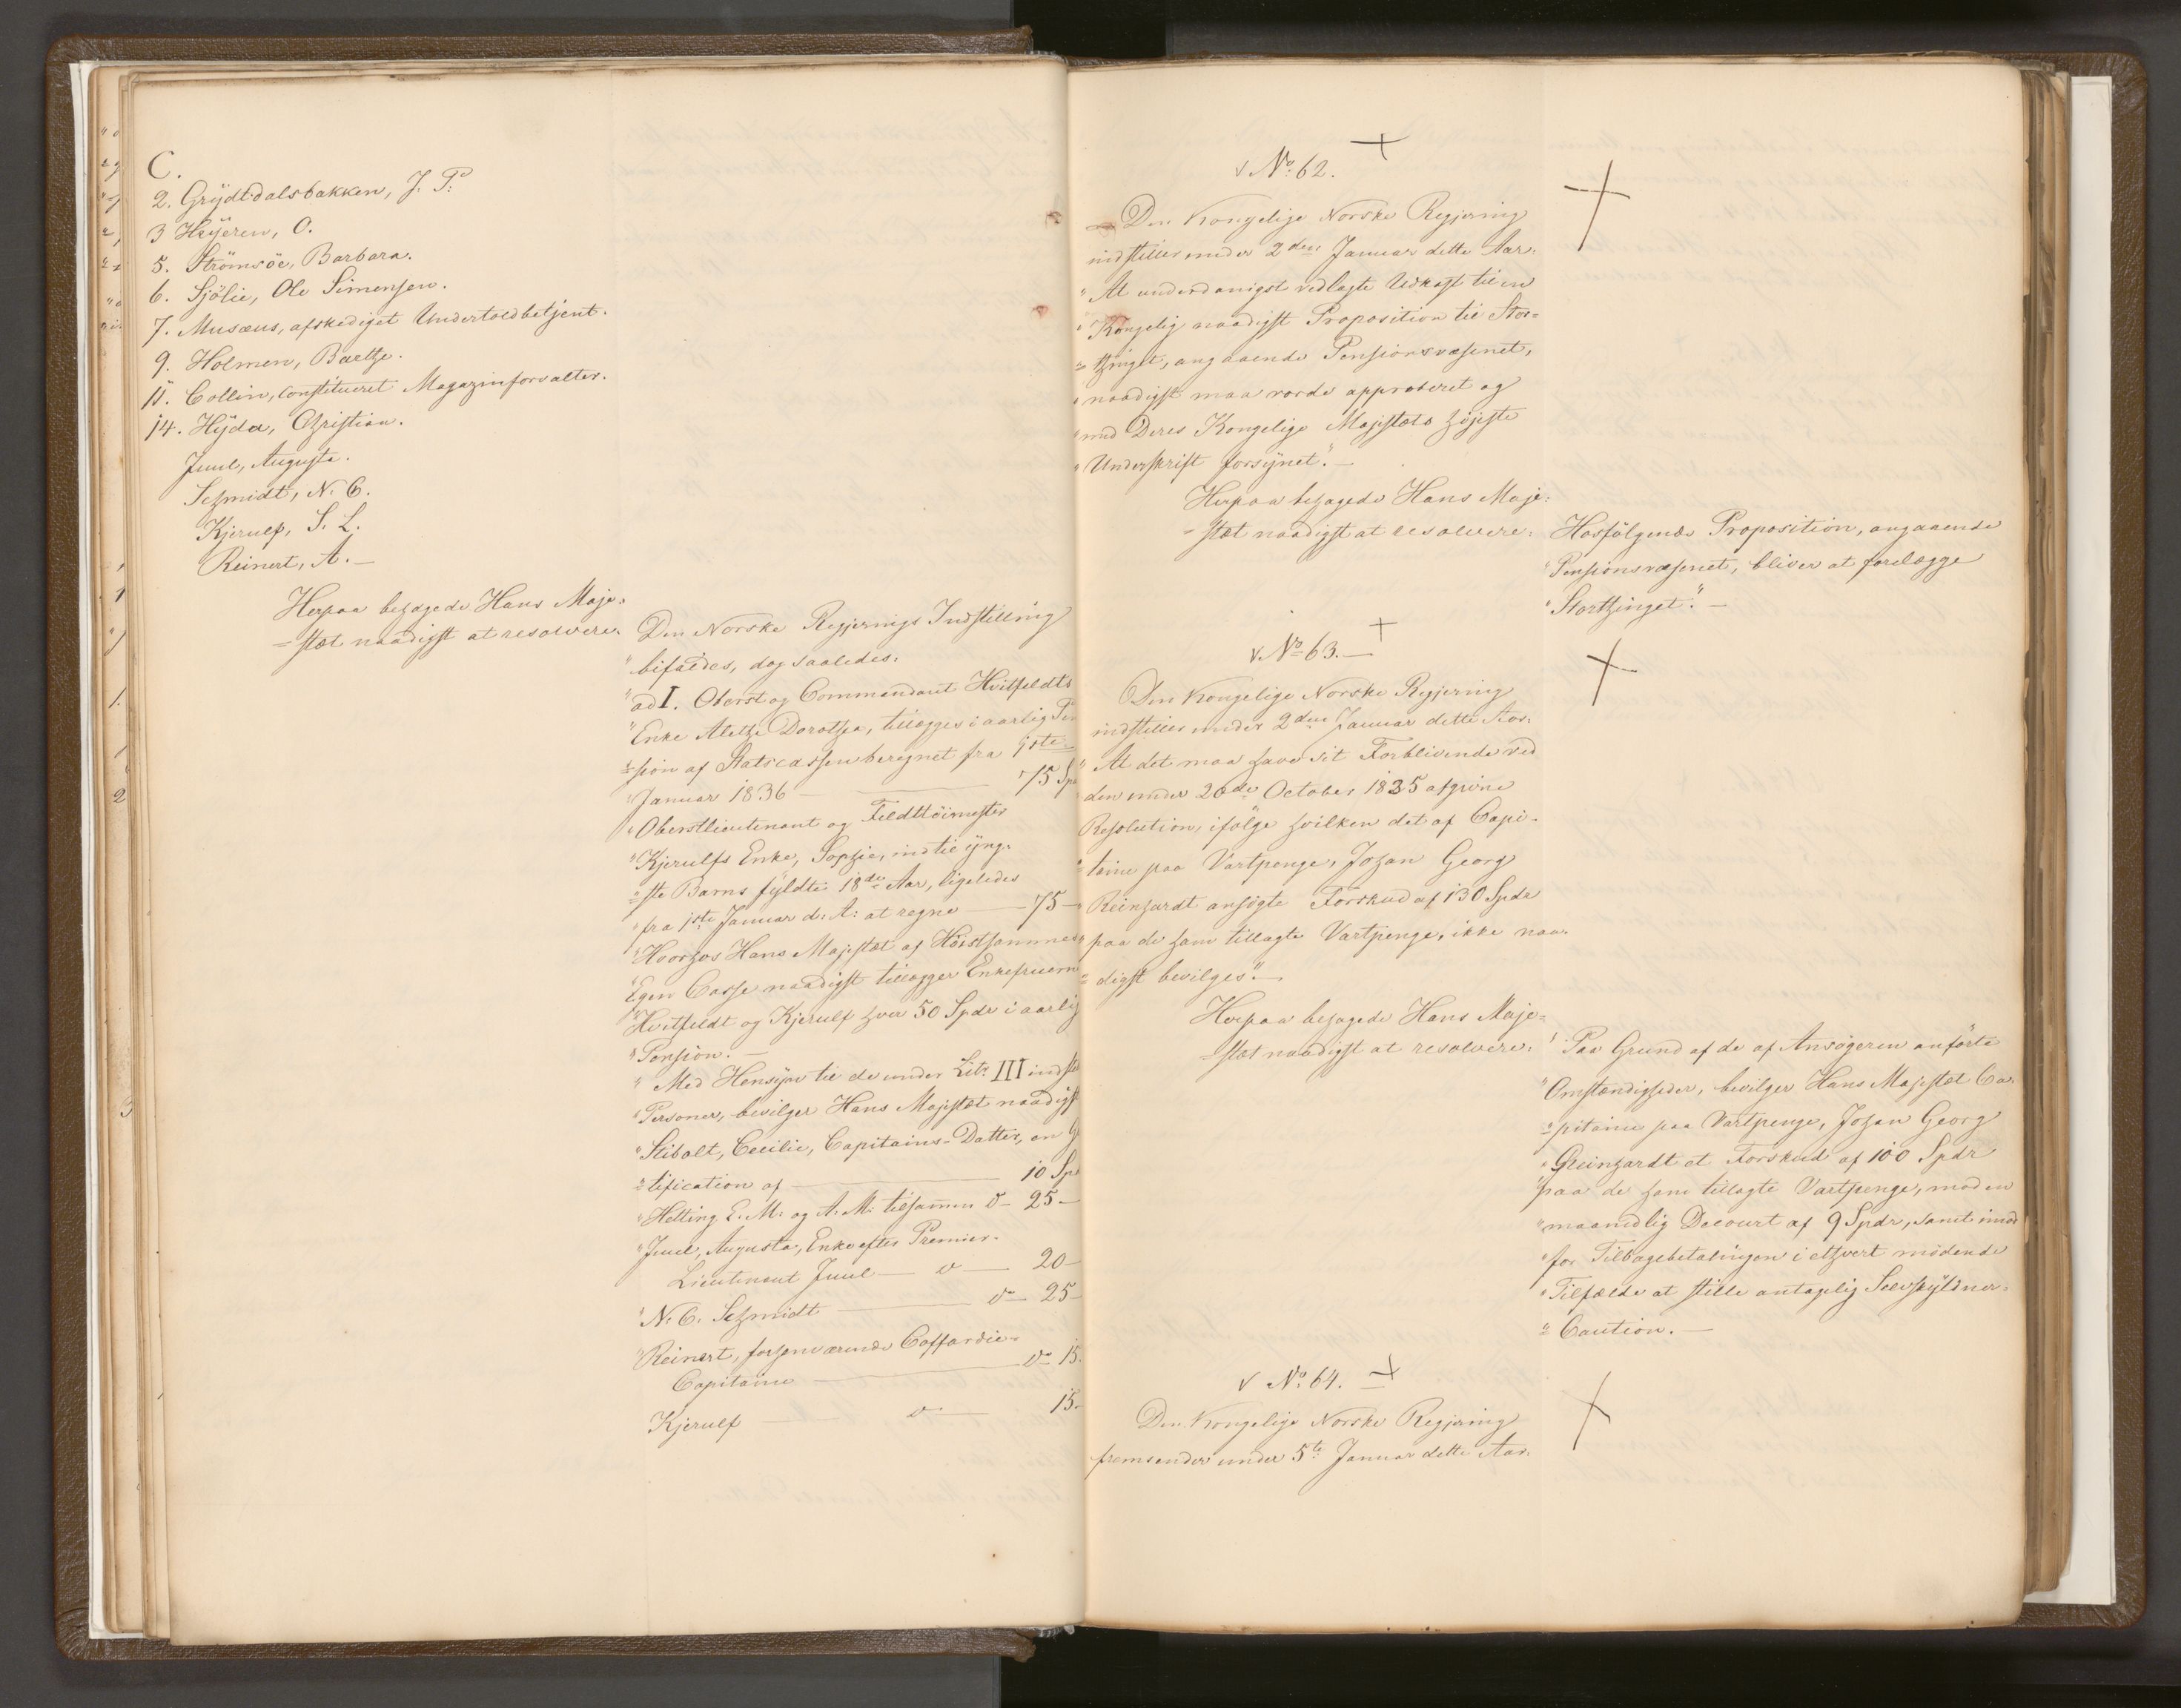 C.
2. Grydtdalsbakken, J. P.
3 Heyeren, O.
5. Strömsöe, Barbara.
6. Sjölie, Ole Simensen.
7. Musæus, afskediget Undertoldbetjent.
9. Holmen, Barthe.
11. Collin, constitueret Magazinforvalter.
14. Hyda, Christian.
Juul, Augusta.
Schmidt, N. C.
Kjerulf, S. L.
Reinert, A. —
Herpaa behagede Hans Maje=
=stæt naadigst at resolvere.
Den Norske Regjerings Indstilling
"bifaldes, dog saaledes.
"ad I. Oberst og Commandant Hvitfeldts
"Enke Alethe Dorothea, tillægges i aarlig Pen
"=sion af Statscassen beregnet fra 1ste
"Januar 1836 — 75 Sp
"Oberstlieutenant og Feldttöimester
"Kjerulfs Enke, Sophie, indtil yng=
"=ste Barns fyldte 18de Aar, ligeledes
"fra 1ste Januar d: A: at regne — 75 —
"Hvorhos Hans Majestæt af Höistsammes
"Egen Casse naadigst tillægger Enkefruerne
"Hvitfeldt og Kjerulf hver 50 Spdr i aarlig
"Pension. —
"Med Hensyn til de under Litr. III indst
"Personer, bevilger Hans Majestæt naadigst
"Stibolt, Cecilie, Capitains-Datter, en G
"=tification af — 10 Sp
"Helting E. M: og A. M: tilsammen d— 25 —
"Juul, Augusta, Enke efter Premier-
Lieutenant Juul — d — 20 —
"N. C. Schmidt — d— 25 —
"Reinert, forhenværende Coffardie-
Capitaine — d— 15.
Kjerulf — d — 15.
v No. 62.
Den Kongelige Norske Regjering
indstiller under 2den Januar dette Aar.
"At underdanigst vedlagte Udkast til en
"Kongelig naadigst Proposition til Stor=
"=thinget, angaaende Pensionsvæsenet,
"naadigst maa vorde approberet og
"med Deres Kongelige Majestæts höjeste
"Underskrift forsynet." —
Herpaa behagede Hans Maje=
=stæt naadigst at resolvere:
Hosfölgende Proposition, angaaende
"Pensionsvæsenet, bliver at forelægge
"Storthinget." —
v. No. 63. —
Den Kongelige Norske Regjering
indstiller under 2den Januar dette Aar.
"At det maa have sit Forblivende ved
den under 20de October 1835 afgivne
Resolution, ifölge hvilken det af Capi-
"=taine paa Vartpenge, Johan Georg
"Reinhardt ansögte Forskud af 130 Spdr
"paa de ham tillagte Vartpenge, ikke naa=
"=digst bevilges." —
Herpaa behagede Hans Maje=
=stæt naadigst at resolvere:
"Paa Grund af de af Ansögeren anförte
"Omstændigheder, bevilger Hans Majestæt Ca=
"=pitaine paa Vartpenge, Johan Georg
"Reinhardt et Forskud af 100 Spdr
"paa de ham tillagte Vartpenge, mod en
"maanedlig Decourt af 9 Spdr, samt imod
"for Tilbagebetalingen i ethvert mödende
"Tilfælde at stille antagelig Selvskyldner=
"=Caution. —
v No. 64.
Den Kongelige Norske Regjering
fremsender under 5te Januar dette Aar.